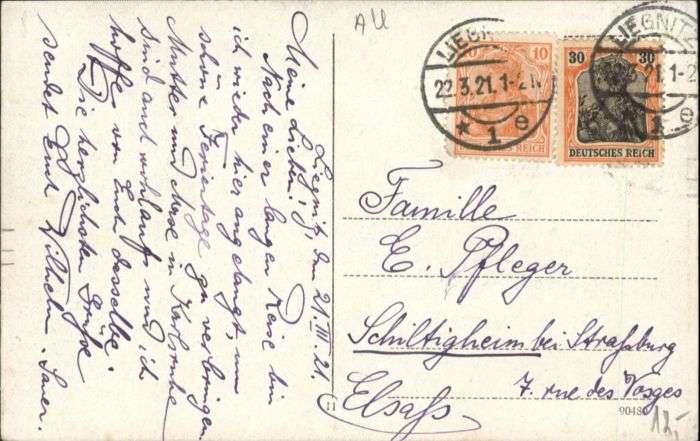 AU
LIEGN
22.3.21.1-2N
* 1 e
10
REICH
LIEGNITZ
3.21.1-2
1 e
30 30
DEUTSCHES REICH
Liegnitz, den 21. III. 21.
Meine Lieben!
Nach einer langen Reise bin
ich wieder hier angelangt, um
schöne Ferientage zu verbringen
Mutter und in Karlsruhe
sind auch wohlauf und ich
hoffe von Euch dasselbe.
Die herzlichsten Grüße
sendet Euch Wilhelm.
Familie
E. Pfleger
Schiltigheim bei Straßburg
7. rue des Vosges
Elsass
90480
12,-